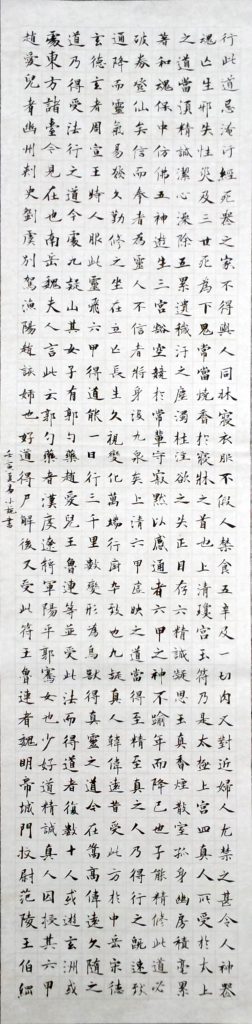 行此道忌淹汙經死喪之家不得與人同牀寢衣服不假人禁食五辛及一切肉又對近婦人尤禁之甚令人神喪
魂亡生邪失性災及三世死為下鬼常當燒香於寢牀之首也上清瓊宮玉符乃是太極上宮四真人所受於太上
之道當須精誠潔心澡除五累遺穢汙之塵濁杜淫欲之失正目存六精凝思玉真香煙散室孤身幽房積毫累
著和魂保中仿佛五神遊生三宮豁空競於常輩守寂默以感通者六甲之神不踰年而降已也子能精修此道必
破券登仙矣信而奉者為靈人不信者將身沒九泉矣上清六甲虛映之道當得至精至真之人乃得行之既速致
通降而靈氣易發久勤修之坐在立亡長生久視變化萬端行廚卒致也九疑真人韓偉遠昔受此方於中岳宋德
玄德玄者周宣王時人服此靈飛六甲得道能一日行三千里數變形為鳥獸得真靈之道今在嵩高偉遠久隨之
道乃得受法行之道今處九疑山其女子有郭勺藥趙愛兒王魯連等並受此法而得道者復數十人或遊玄洲或
處東方諸臺今見在也南岳魏夫人言此云郭勺藥漢度遼將軍陽平郭騫女也少好道精誠真人因授其六甲
趙愛兒者幽州刺史劉虞別駕漁陽趙該姊也好道得尸解後又受此符王魯連者魏明帝城門校尉范陵王伯綱
壬寅夏 小 書